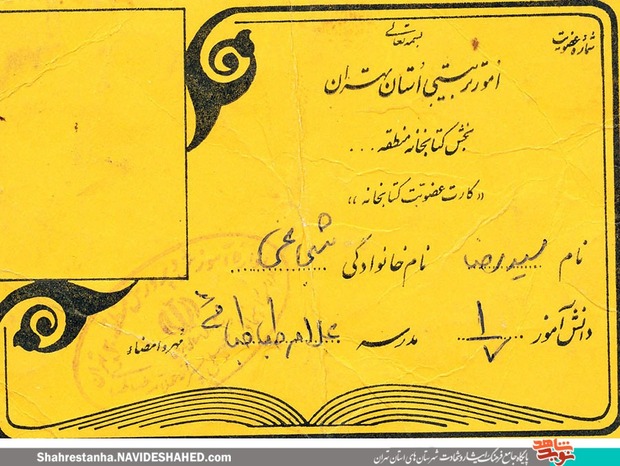 بسمه تعالی
شماره عضویت
امور تربیتی استان تهران
بخش کتابخانه منطقه ...
«کارت عضویت کتابخانه»
نام سیدرضا نام خانوادگی شجاعی
دانش آموز ۱/۷ مدرسه علامه طباطبائی مهر و امضاء
Shahrestanha.NAVIDESHAHED.com
نوید شاهد
پایگاه جامع فرهنگ ایثار و شهادت شهرستان های استان تهران